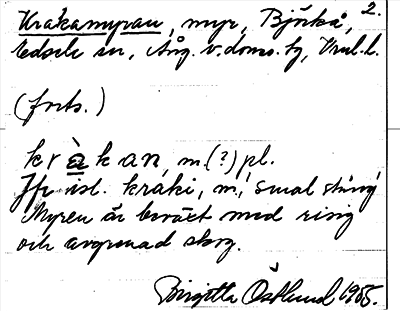 2.
Krakamyran, myr, Björkå,
Edsele sn, Ång. v. doms. tg, Vnl. l.
(forts.)
kràkan, m.(?) pl.
Jfr isl. kraki, m., smal stång
Myren är beväxt med risig
och avgrenad skog.
Birgitta Östlund 1955.